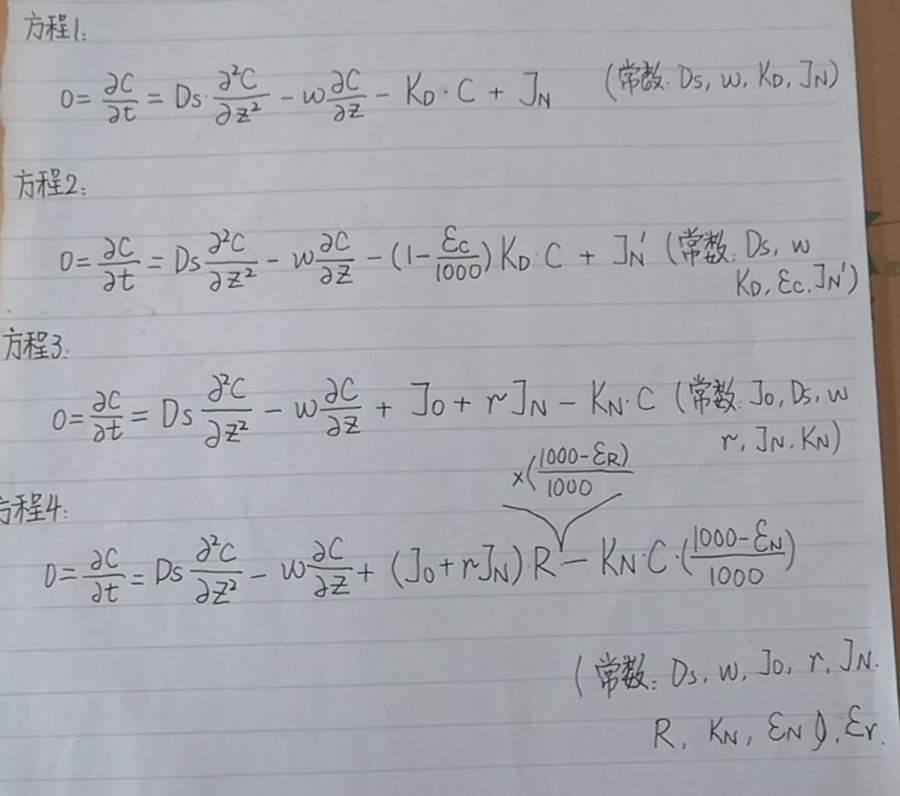 方程1:
0 = ∂C/∂t = Ds·∂²C/∂z² - w ∂C/∂z - KD·C + JN (常数: Ds, w, KD, JN)
方程2:
0 = ∂C/∂t = Ds ∂²C/∂z² - w ∂C/∂z - (1 - εc/1000) KD·C + JN' (常数: Ds, w
KD, εc, JN')
方程3:
0 = ∂C/∂t = Ds ∂²C/∂z² - w ∂C/∂z + J0 + rJN - KN·C (常数: J0, Ds, w
r, JN, KN)
×(1000-εR)/1000
方程4:
0 = ∂C/∂t = Ds ∂²C/∂z² - w ∂C/∂z + (J0 + rJN)·R - KN·C·(1000-εN)/1000
(常数: Ds, w, J0, r, JN.
R, KN, εN), εr.